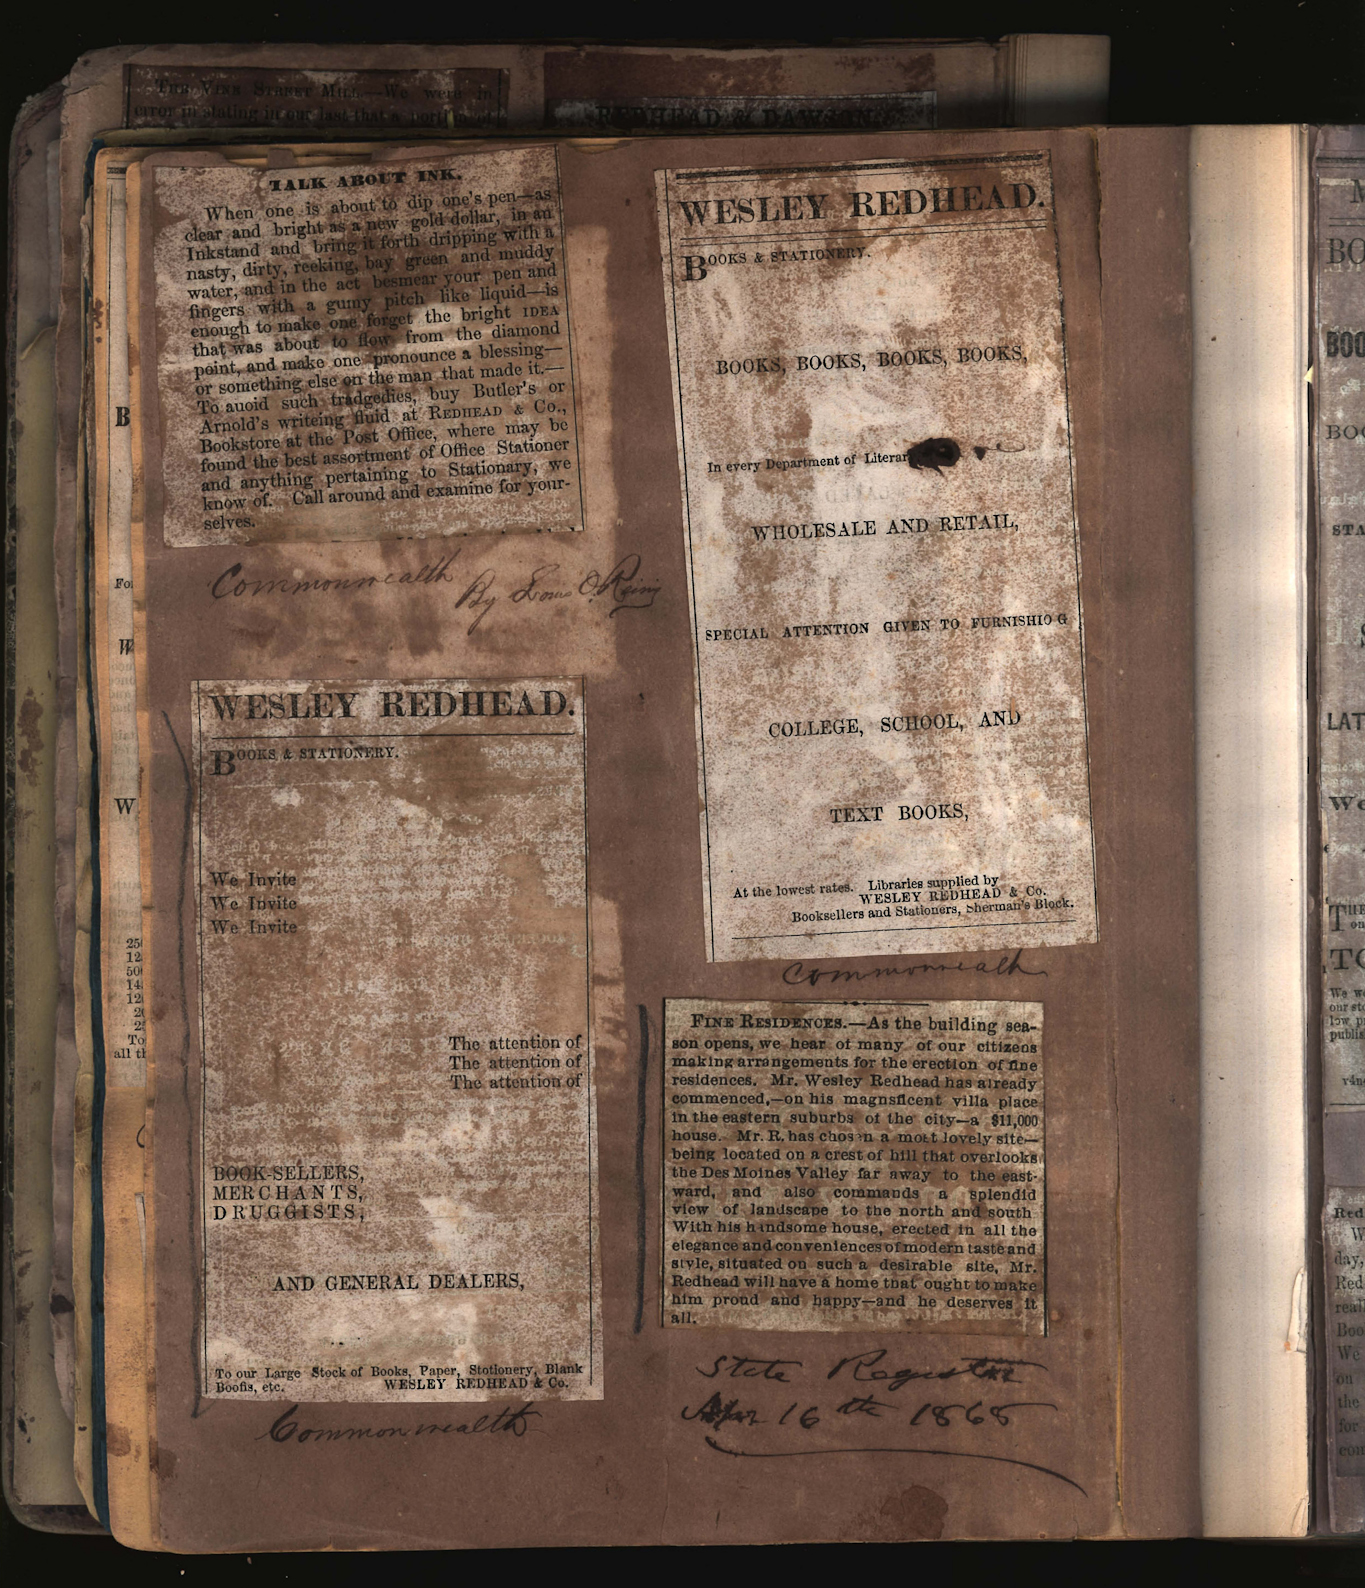 THE VINE STREET MILL.—We were in
error in stating in our last that a portion of
REDHEAD & DAWSON'S
TALK ABOUT INK.
When one is about to dip one's pen—as
clear and bright as a new gold dollar, in an
Inkstand and bring it forth dripping with a
nasty, dirty, reeking, bay green and muddy
water, and in the act besmear your pen and
fingers with a gumy pitch like liquid—is
enough to make one forget the bright IDEA
that was about to flow from the diamond
point, and make one pronounce a blessing—
or something else on the man that made it.—
To auoid such tradgedies, buy Butler's or
Arnold's writeing fluid at REDHEAD & Co.,
Bookstore at the Post Office, where may be
found the best assortment of Office Stationer
and anything pertaining to Stationary, we
know of. Call around and examine for your-
selves.
Commonwealth
By Louis O.
WESLEY REDHEAD.
BOOKS & STATIONERY.
We Invite
We Invite
We Invite
The attention of
The attention of
The attention of
BOOK-SELLERS,
MERCHANTS,
DRUGGISTS,
AND GENERAL DEALERS,
To our Large Stock of Books, Paper, Stotionery, Blank
Boofis, etc. WESLEY REDHEAD & Co.
Commonwealth
WESLEY REDHEAD.
BOOKS & STATIONERY.
BOOKS, BOOKS, BOOKS, BOOKS,
In every Department of Literar
WHOLESALE AND RETAIL,
SPECIAL ATTENTION GIVEN TO FURNISHIO G
COLLEGE, SCHOOL, AND
TEXT BOOKS,
At the lowest rates. Libraries supplied by
WESLEY REDHEAD & Co.
Booksellers and Stationers, Sherman's Block.
Commonwealth
FINE RESIDENCES.—As the building sea-
son opens, we hear of many of our citizens
making arrangements for the erection of fine
residences. Mr. Wesley Redhead has already
commenced,—on his magnsficent villa place
in the eastern suburbs of the city—a $11,000
house. Mr. R. has chosen a most lovely site—
being located on a crest of hill that overlooks
the Des Moines Valley far away to the east-
ward, and also commands a splendid
view of landscape to the north and south
With his handsome house, erected in all the
elegance and conveniences of modern taste and
style, situated on such a desirable site, Mr.
Redhead will have a home that ought to make
him proud and happy—and he deserves it
all.
State Register
Apr 16th 1868